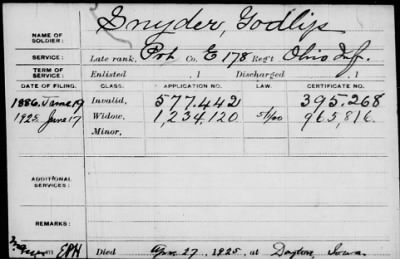 NAME OF SOLDIER: Snyder, Godlip
SERVICE: Late rank, Pvt Co. E 178 Reg't Ohio Inf.
TERM OF SERVICE: Enlisted , 1 Discharged , 1
DATE OF FILING. CLASS. APPLICATION NO. LAW. CERTIFICATE NO.
1886, June 19 Invalid, 577.442 395.268
1925, June 17 Widow, 1,234,120 965,816.
Minor,
ADDITIONAL SERVICES:
REMARKS:
Died Apr. 27, 1925, at Dayton, Iowa.